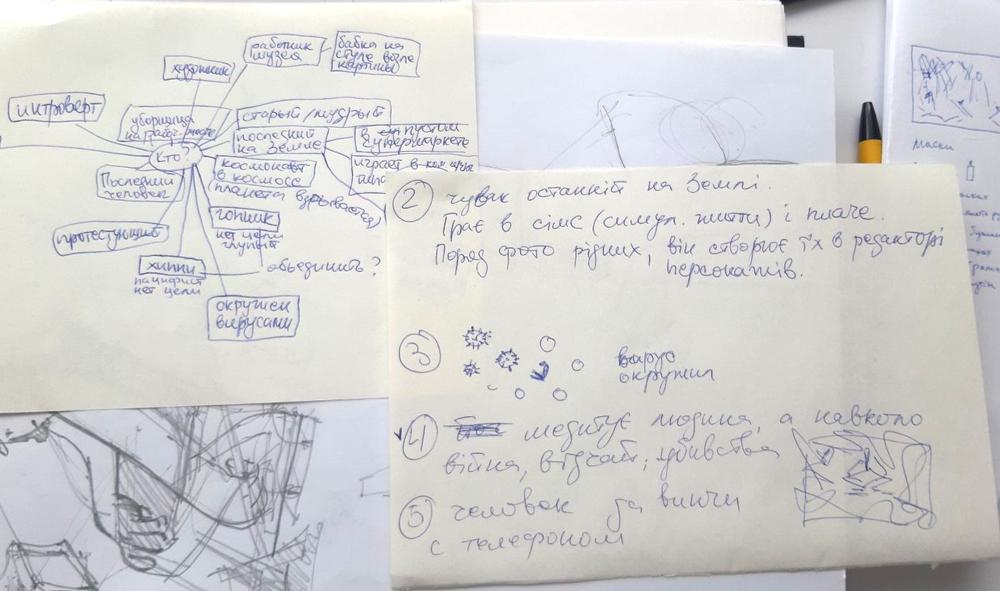 работник
музея
бабка на
стуле возле
картины
художник
интроверт
уборщица
старый мудрый
последний
на земле
в пустом
супермаркете
играет в
кто?
космонавт
в космосе
планета взрывается
Последний
человек
гопник
нет цели
глупый
протестующий
хиппи
пацифист
нет цели
объединить?
окружен
вирусами
2 чувак останній на Землі.
Грає в сімс (симул. життя) і плаче.
Поряд фото рідних, він створює їх в редакторі
персонажів.
3 вирус
окружил
4 медитує людина, а навколо
війна, відчай, убивства
5 человек да винчи
с телефоном
Маски